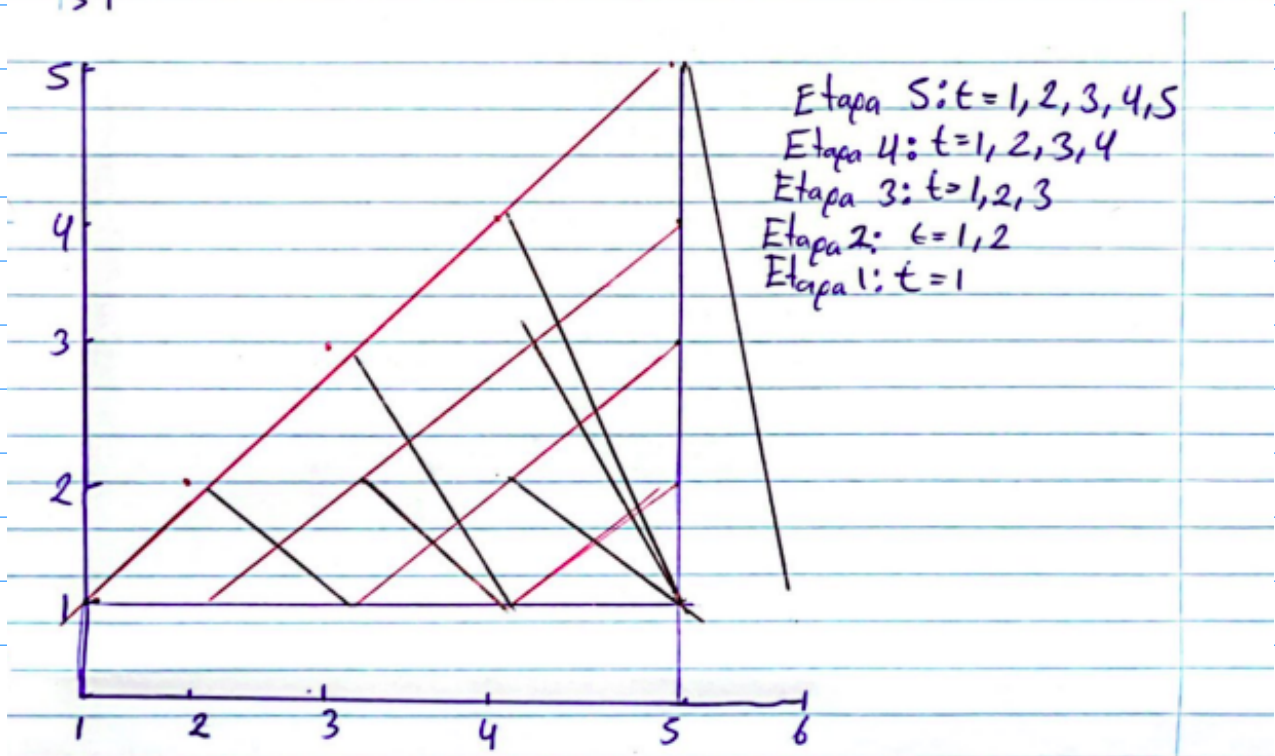 5
4
3
2
1
1 2 3 4 5 6
Etapa 5: t = 1, 2, 3, 4, 5
Etapa 4: t = 1, 2, 3, 4
Etapa 3: t = 1, 2, 3
Etapa 2: t = 1, 2
Etapa 1: t = 1